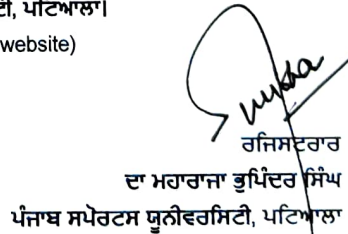 ਟੀ, ਪਟਿਆਲਾ।
website)
ਰਜਿਸਟਰਾਰ
ਦਾ ਮਹਾਰਾਜਾ ਭੁਪਿੰਦਰ ਸਿੰਘ
ਪੰਜਾਬ ਸਪੋਰਟਸ ਯੂਨੀਵਰਸਿਟੀ, ਪਟਿਆਲਾ